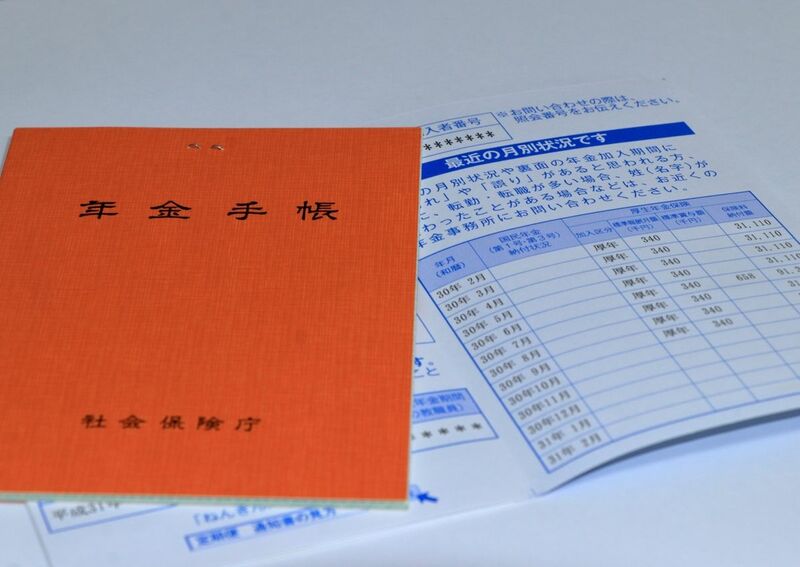 年金手帳
社会保険庁
入者番号
*******
※お問い合わせの際は、
照会番号をお伝えください。
最近の月別状況です
の月別状況や裏面の年金加入期間に
れ」や「誤り」があると思われる方、
に、転勤・転職が多い場合、姓(名字)が
わったことがある場合などは、お近くの
年金事務所にお問い合わせください。
年月
(和暦)
国民年金
(第1号・第3号)
納付状況
厚生年金保険
加入区分
標準報酬月額
(千円)
標準賞与額
(千円)
保険料
納付額
30年 2月 厚年 340 31,110
30年 3月 厚年 340 31,110
30年 4月 厚年 340 31,110
30年 5月 厚年 340 658
30年 6月 厚年 340
30年 7月
30年 8月
30年 9月
30年10月
30年11月
30年12月
31年 1月
31年 2月
年金期間
の教職員)
*****
こと
平成31年
「ねんきん
定期便 通知書の見方